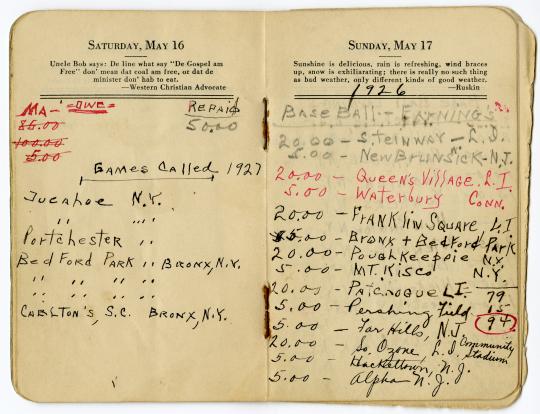 SATURDAY, MAY 16
Uncle Bob says: De line what say "De Gospel am
Free" don' mean dat coal am free, or dat de
minister don' hab to eat.
—Western Christian Advocate
MA- OWE
REPAID
85.00
50.00
100.00
5.00
GAMES CALLED 1927
TUCAHOE N.Y.
" "
PORTCHESTER "
BEDFORD PARK " BRONX, N.Y.
" " " "
" " " "
CARLTON'S, S.C. BRONX, N.Y.
SUNDAY, MAY 17
Sunshine is delicious, rain is refreshing, wind braces
up, snow is exhiliarating; there is really no such thing
as bad weather, only different kinds of good weather.
—Ruskin
1926
BASE BALL - EARNINGS
20.00 - STEINWAY - L.I.
5.00 - NEW BRUNSICK - N.J.
20.00 - QUEEN'S VILLAGE, L.I.
5.00 - WATERBURY CONN.
20.00 - FRANKLIN SQUARE L.I
5.00 - BRONX + BEDFORD PARK
20.00 - POUGHKEEPPIE N.Y.
5.00 - MT. KISCO N.Y.
20.00 - PATCHOGUE L.I. 79
5.00 - Pershing Field 15
5.00 - Far Hills, N.J 94
20.00 - So. Ozone, L.I. Community Stadium
5.00 - Hackettown, N.J.
5.00 - Alpha N.J.